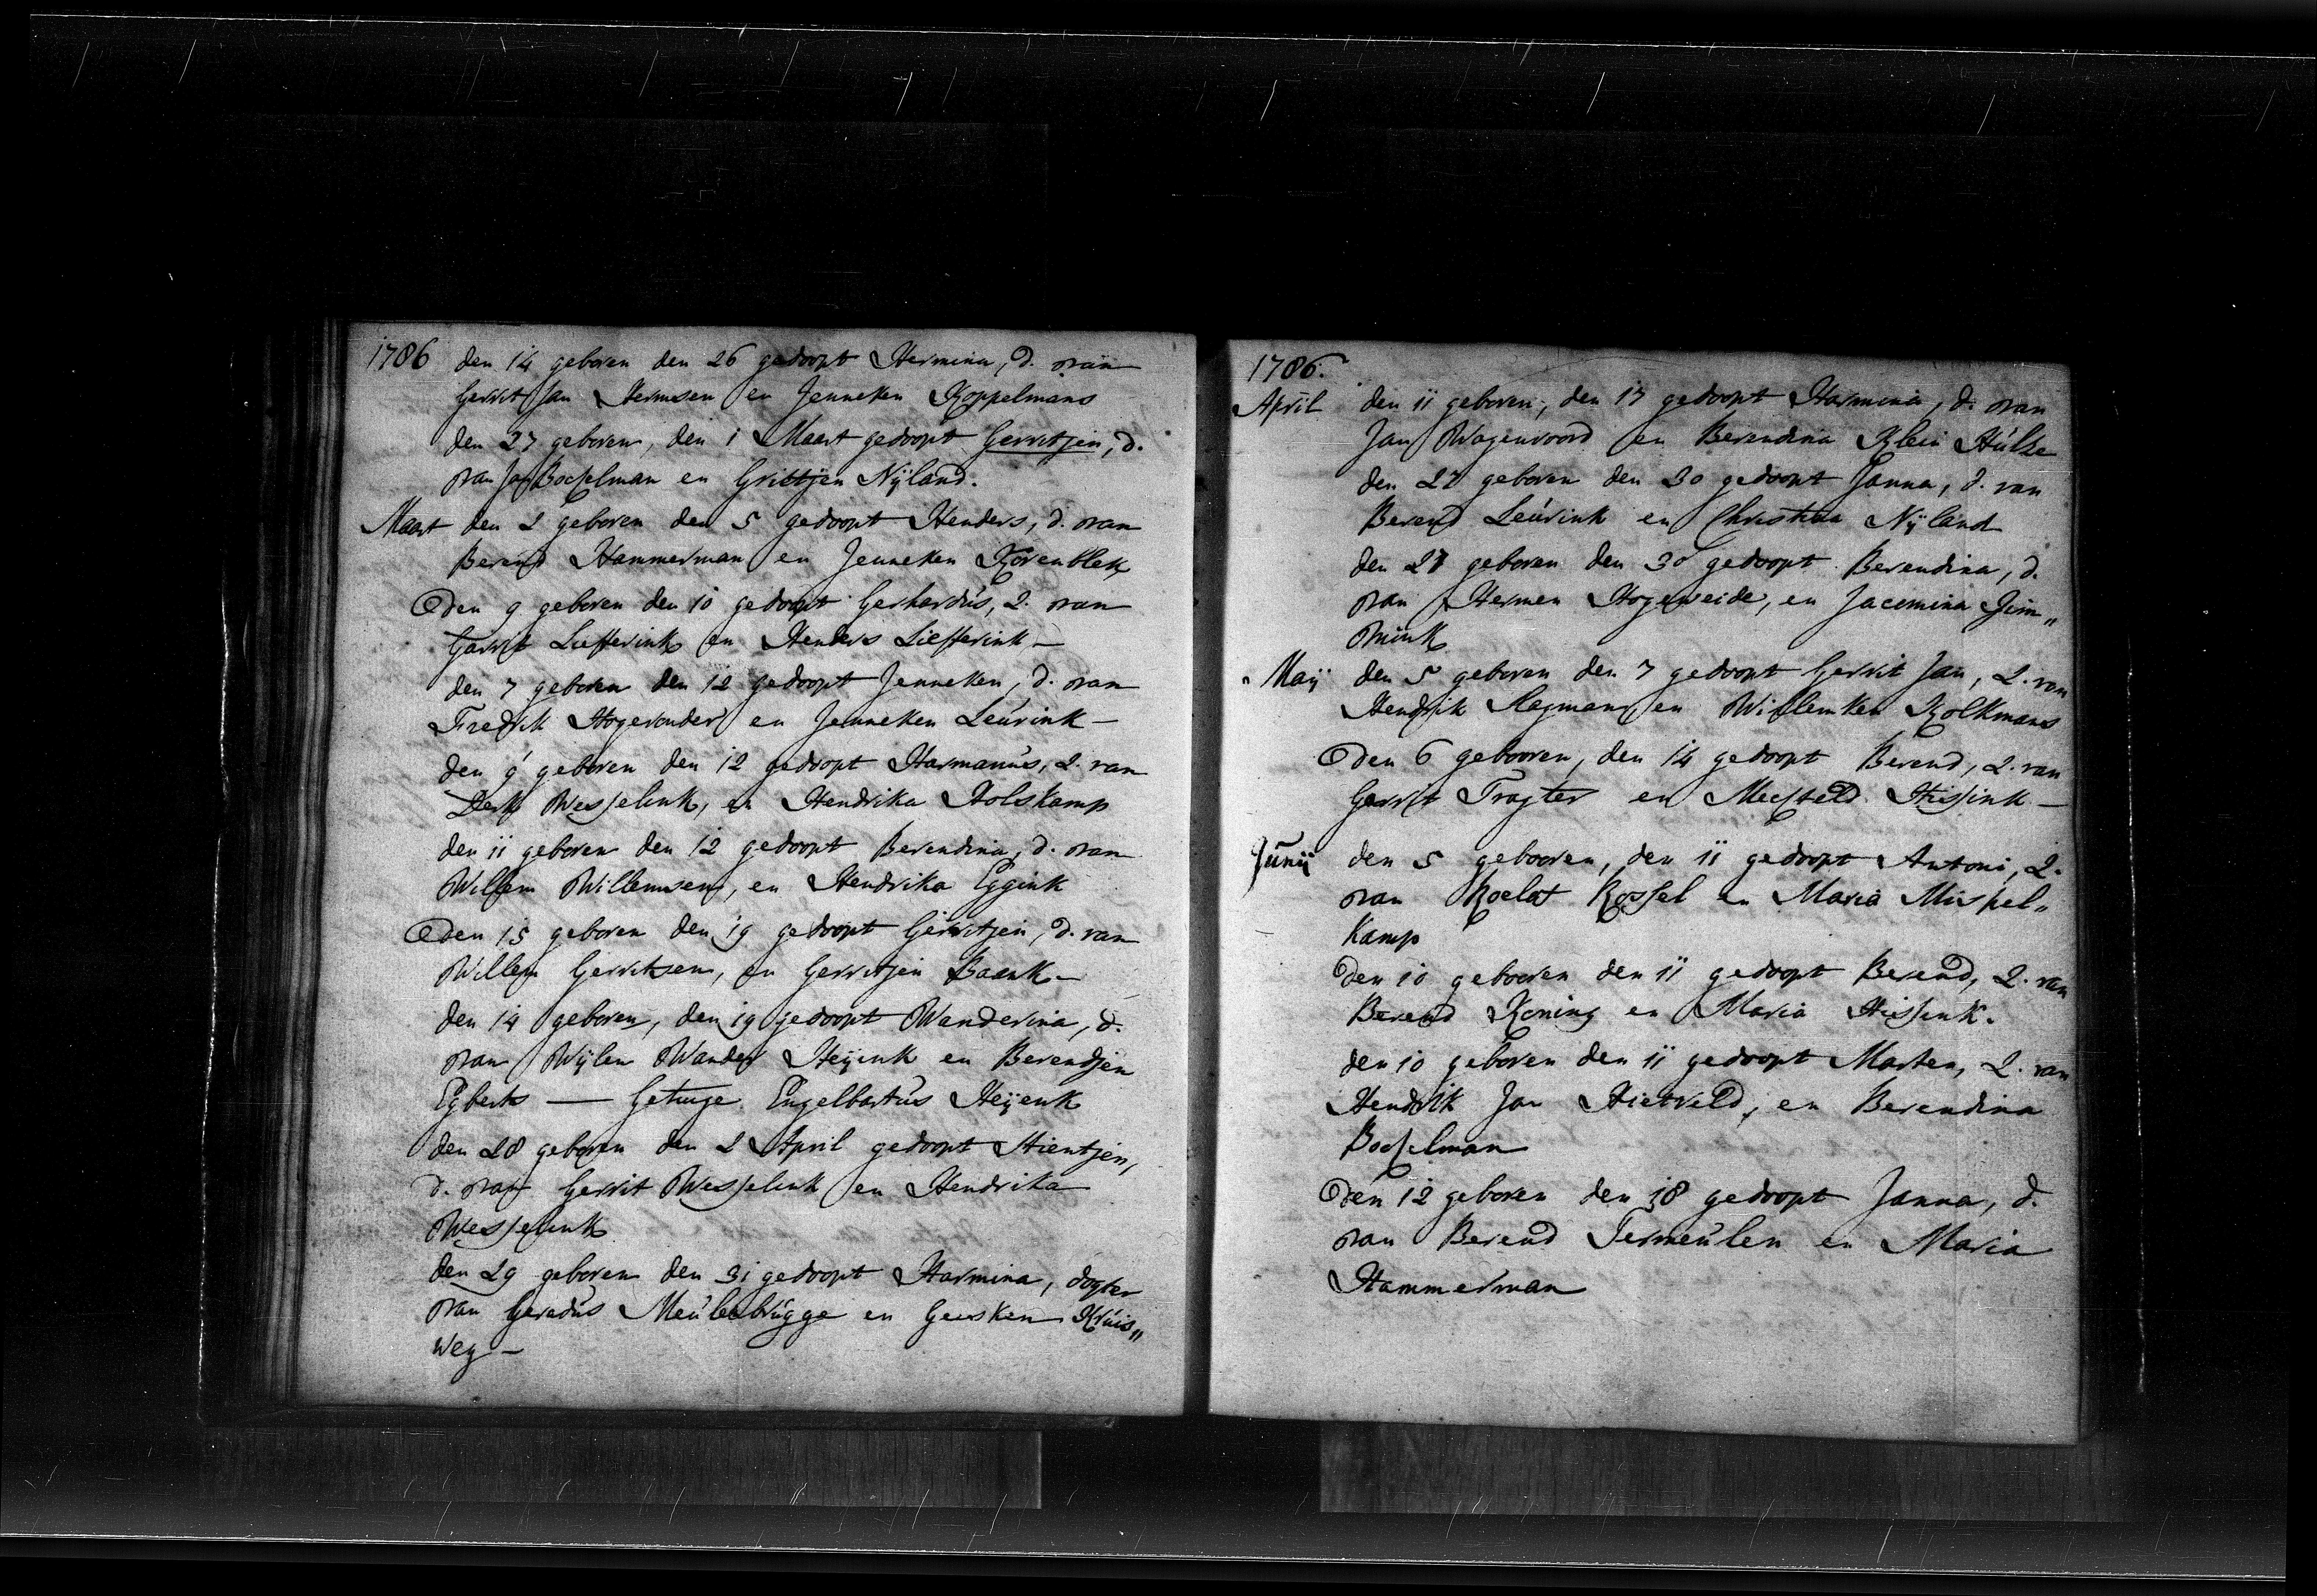 1786 den 14 geboren den 26 gedoopt Hermina, d. van
Gerrit Jan Hermsen en Jenneken Koppelmans
den 27 geboren, den 1 Maart gedoopt Gerritjen, d.
van Jan Boesselman en Grittjen Nÿland.
Maart den 2 geboren den 5 gedoopt Henders, d. van
Berend Hammerman en Jenneken Korenblek
den 9 geboren den 10 gedoopt Gerhardus, Z. van
Garrit Liefferink en Henders Liefferink —
den 7 geboren den 12 gedoopt Jenneken, d. van
Fredrik Hogevonder en Jenneken Leurink —
den 9 geboren den 12 gedoopt Harmanus, Z. van
Derk Wesselink, en Hendrika Holskamp
den 11 geboren den 12 gedoopt Berendina, d. van
Willem Willemsen, en Hendrika Eggink
den 15 geboren den 19 gedoopt Gerritjen, d. van
Willem Gerritsen, en Gerritjen Baank —
den 14 geboren, den 19 gedoopt Wanderina, d.
van Wÿlen Wander Heÿink en Berendjen
Egberts — Getuige Engelbartus Heÿenk
den 28 geboren den 2 April gedoopt Hientjen,
d. van Gerrit Wesselink en Hendrika
Wesselink
den 29 geboren den 31 gedoopt Harmina, dogter
van Geradus Meulenbrugge en Geesken Kruis„
weg —
1786.
April den 11 geboren, den 17 gedoopt Harmina, d. van
Jan Wagenvoord en Berendina Klein Hulze
den 27 geboren den 30 gedoopt Janna, d. van
Berend Leurink en Christina Nÿland
den 27 geboren den 30 gedoopt Berendina, d.
van Hermen Hogeweide, en Jacemina Jim„
mink
Maÿ den 5 geboren den 7 gedoopt Gerrit Jan, Z. van
Hendrik Regman en Willemken Kolkmans
den 6 gebooren, den 14 gedoopt Berend, Z. van
Gerrit Tragter en Mechteld Hissink —
Junÿ den 5 gebooren, den 11 gedoopt Antoni, Z.
van Roelot Rossel en Maria Mispel„
kamp
den 10 gebooren den 11 gedoopt Berend, Z. van
Berend Koning en Maria Hissink.
den 10 geboren den 11 gedoopt Marten, Z. van
Hendrik Jan Hietveld, en Berendina
Boesselman
den 12 geboren den 18 gedoopt Janna, d.
van Berend Termeulen en Maria
Hammerman